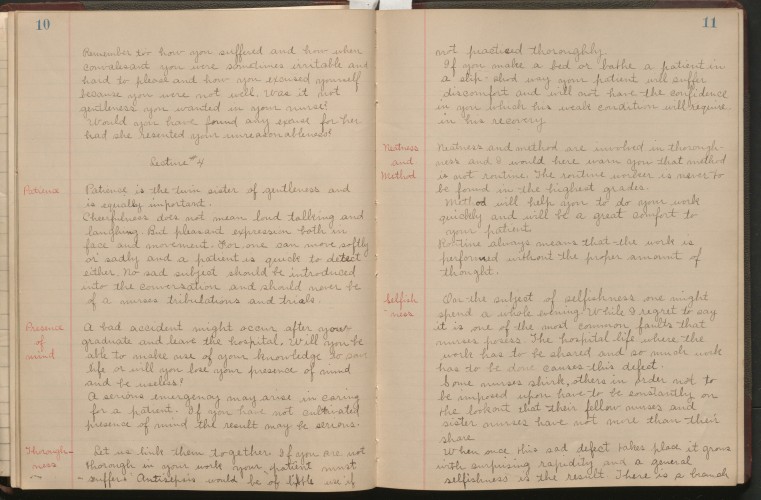 10
Remember too how you suffered and how when
convalesant you were sometimes irritable and
hard to please and how you excused yourself
because you were not well. Was it not
gentleness you wanted in your nurse?
Would you have found any excuse for her
had she resented your unreasonableness?
Lecture #4
Patience
Patience is the twin sister of gentleness and
is equally important.
Chearfulness does not mean loud talking and
laughing. But pleasant expression both in
face and movement. For one can move softly
or sadly and a patient is quick to detect
either. No sad subject should be introduced
into the conversation and should never be
of a nurses tribulations and trials.
Presence
of
mind
A bad accident might occur after you
graduate and leave the hospital. Will you be
able to make use of your knowledge to save
life or will you lose your presence of mind
and be useless?
A serious emergency may arise in caring
for a patient. If you have not cultivated
presence of mind the result may be serious.
Thorough-
ness
Let us link them together. If you are not
thorough in your work your patient must
suffer. Antisepsis would be of little use if
11
not practiced thoroughly
If you make a bed or bathe a patient in
a slip-shod way your patient will suffer
discomfort and will not have the confidence
in you which his weak condition will require
in his recovery
Neatness
and
Method
Neatness and method are involved in thorough-
ness and I would here warn you that method
is not routine. The routine worker is never to
be found in the highest grades.
Method will help you to do your work
quickly and will be a great comfort to
your patient
Routine always means that the work is
performed without the proper amount of
thought.
Selfish
-ness
On the subject of selfishness one might
spend a whole evening. While I regret to say
it is one of the most common faults that
nurses posess. The hospital life where the
work has to be shared and so much work
has to be done causes this defect.
Some nurses shirk, others in order not to
be imposed upon have to be constantly on
the lookout that their fellow nurses and
sister nurses have not more than their
share
When once this sad defect takes place it grows
with surprising rapidity and a general
selfishness is the result. There is a branch